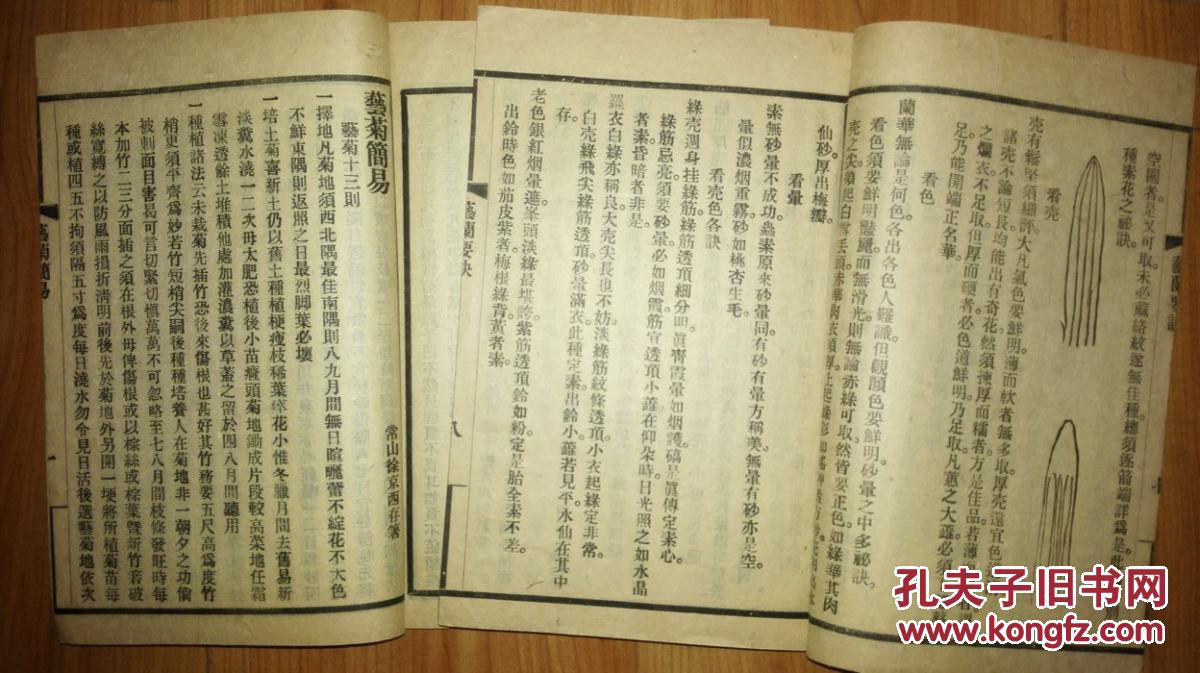 藝蘭要訣
空圓者是又可取未必蔴絡紋遂無佳種總須逐箭端詳爲是此
種素花之祕訣
看壳
壳有軽堅須細評大凡氣色要鮮明薄而軟者無多取厚壳還宜色
諸壳不論短長均能出有奇花然須揀厚而糯者方是佳品若薄
之爛衣不足取但厚而硬者必色道鮮明乃足取凡蕙之大蕋必須
足乃能開端正名華
看色
蘭華無論是何色各出各色人難識但觀顔色要鮮明砂暈之中多祕訣
看色須要鮮明豔麗而無滑光則無論赤綠可取然皆要正色如綠華其肉
壳之尖須起白雪丢頭赤華肉衣須厚上起綠彩
仙砂厚出梅瓣
看暈
素無砂暈不成功蟲素原來砂暈同有砂有暈方稱美無暈有砂亦是空
暈似濃烟重霧砂如桃杏生毛
看壳色各訣
綠壳週身挂綠筋綠筋透頂細分明眞靑霞暈如烟護碻是眞傳定素心
綠筋忌亮須要砂暈必如烟霞筋宜透頂小蕋在仰朶時日光照之如水晶
者素昏暗者非是
羅衣白綠亦稱良大壳尖長也不妨淡綠筋紋條透頂小衣起綠定非常
白壳綠飛尖綠筋透頂砂暈滿衣此種定素出鈴小蕋若見平水仙在其中
存
老色銀紅烟暈遮峰頭淡綠最堪誇紫筋透頂鈴如粉定是胎全素不差
出鈴時色如茄皮紫者梅根綠背黃者素
藝蘭要訣
八
藝菊簡易
常山徐京西存箸
藝菊十三則
一擇地凡菊地須西北隅最佳南隅則八九月間無日暄曬蕾不綻花不大色
不鮮東隅則返照之日最烈脚葉必壞
一培土菊喜新土仍以舊土種植梗瘦枝稀葉瘁花小惟冬臘月間去舊易新
淡糞水澆一二次毋太肥恐植後小苗癃頭菊地鋤成片段較高菜地任霜
雪凍透餘土堆積他處加灌濃糞以草蓋之留於四八月間聽用
一種植諸法云未栽菊先插竹恐後來傷根也甚好其竹務要五尺高爲度竹
梢更須平齊爲妙若竹短梢尖嗣後種種培養人在菊地非一朝夕之功偷
被刺面目害曷可言切緊切愼萬萬不可忽略至七八月間枝條發旺時每
本加竹二三分面插之須在根外毋俾傷根或以棕絲或棕葉曁新竹若破
絲寬縛之以防風雨損折淸明前後先於菊地外另開一埂將所植菊苗每
種或植四五不拘須隔五寸爲度每日澆水勿令見日活後選藝菊地依次
藝菊簡易
一
孔夫子旧书网
www.kongfz.com